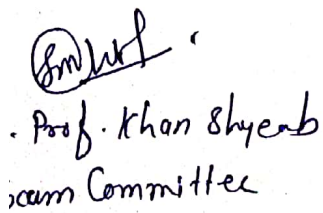 . Prof. Khan Shyeab
xam Committee